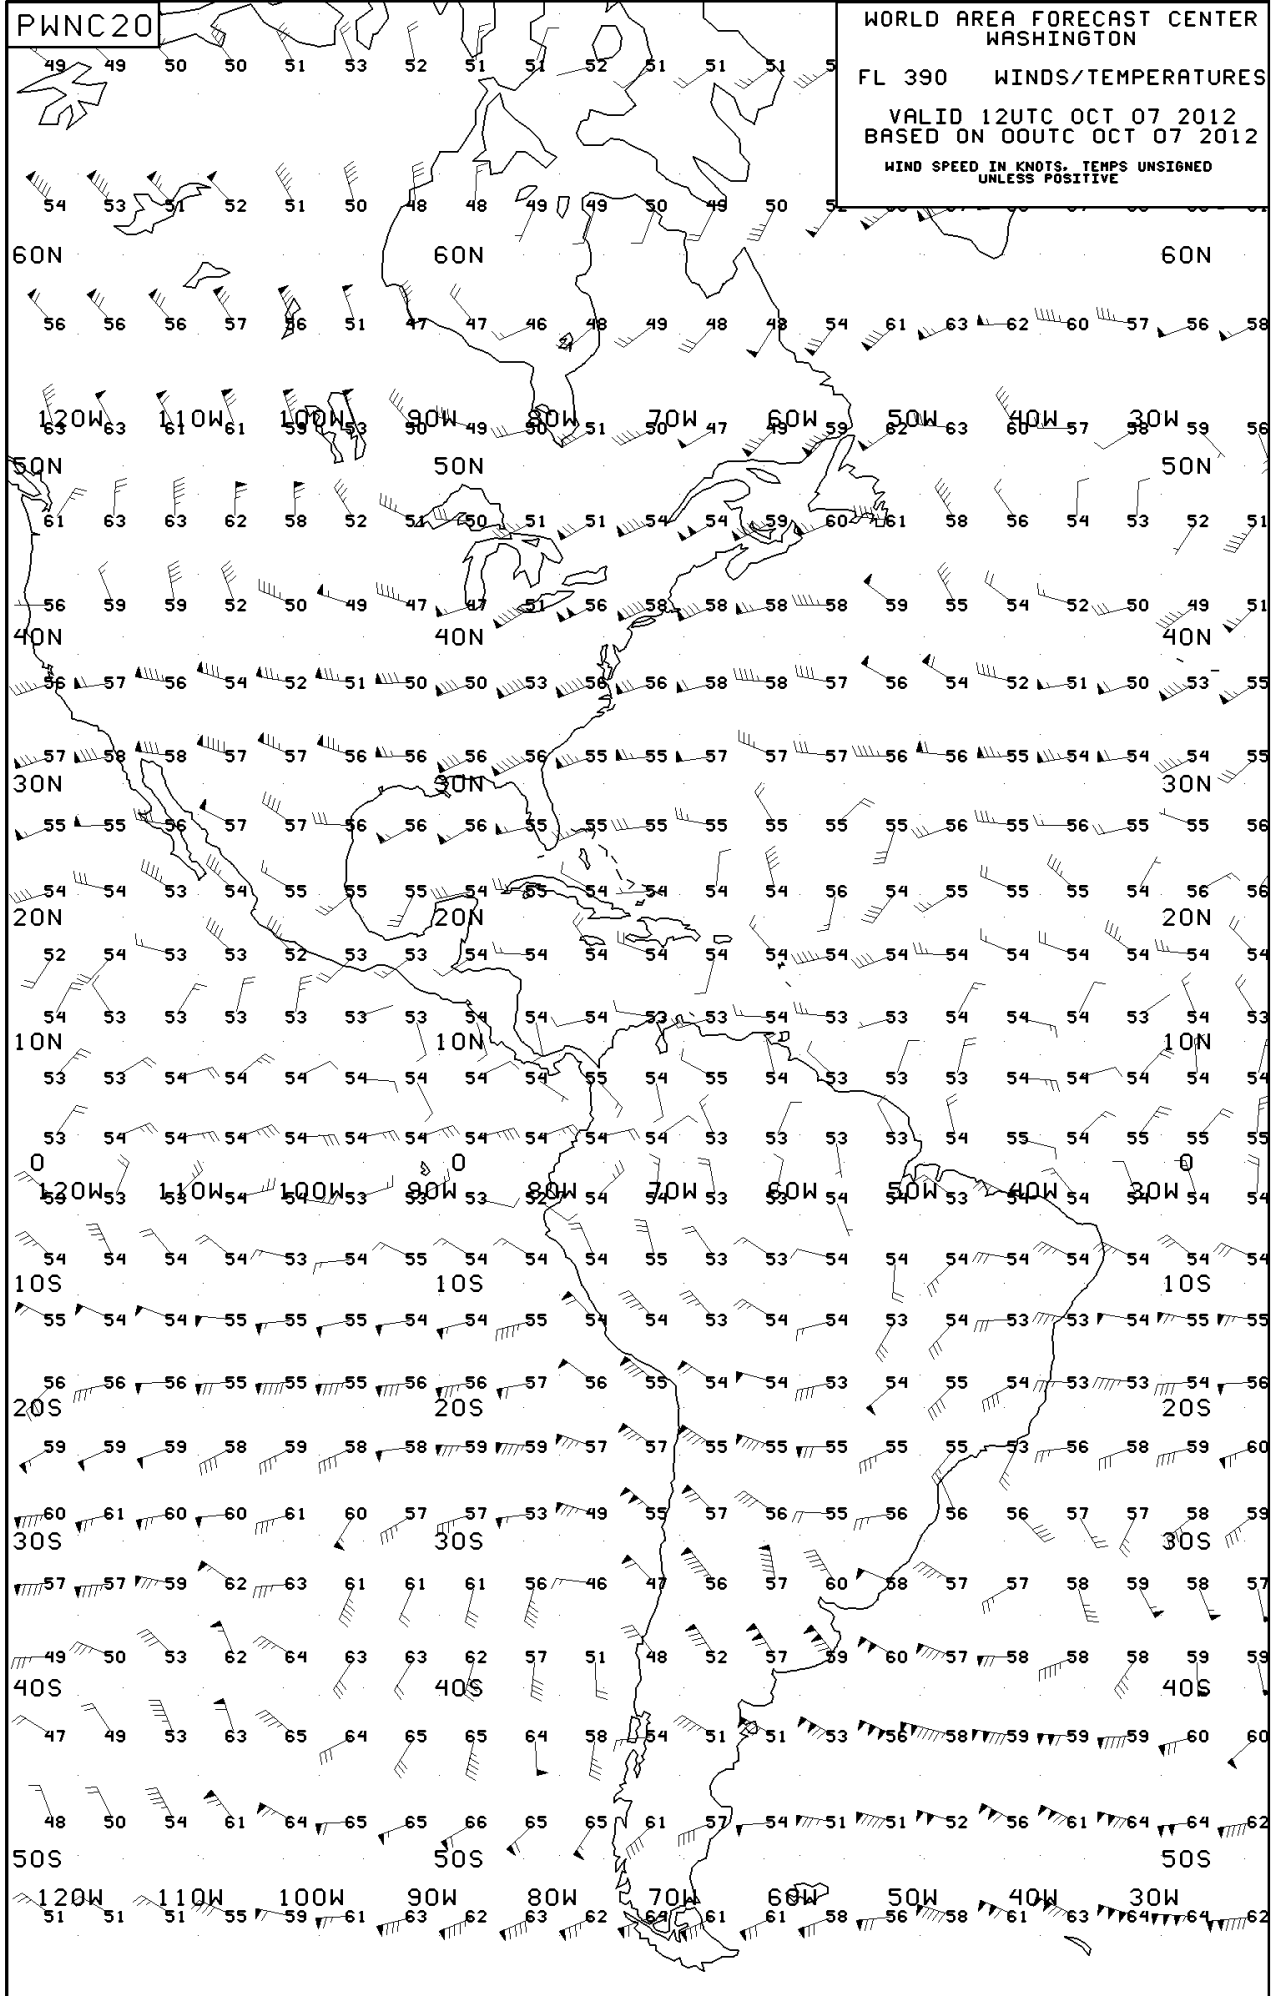 PWNC20
WORLD AREA FORECAST CENTER
WASHINGTON
FL 390 WINDS/TEMPERATURES
VALID 12UTC OCT 07 2012
BASED ON 00UTC OCT 07 2012
WIND SPEED IN KNOTS, TEMPS UNSIGNED
UNLESS POSITIVE
49 49 50 50 51 53 52 51 51 52 51 51 51
54 53 51 52 51 50 48 48 49 49 50 49 50
60N 60N 60N
56 56 56 57 56 51 47 47 46 48 49 48 48 54 61 63 62 60 57 56 58
120W 110W 100W 90W 80W 70W 60W 50W 40W 30W
63 63 61 61 59 53 50 49 50 51 50 47 49 59 62 63 60 57 58 59 56
50N 50N 50N
61 63 63 62 58 52 51 50 51 51 54 54 59 60 61 58 56 54 53 52 51
56 59 59 52 50 49 47 47 51 56 58 58 58 58 59 55 54 52 50 49 51
40N 40N 40N
56 57 56 54 52 51 50 50 53 56 56 58 58 57 56 54 52 51 50 53 55
57 58 58 57 57 56 56 56 56 55 55 57 57 57 56 56 55 54 54 54 55
30N 30N 30N
55 55 56 57 57 56 56 56 55 55 55 55 55 55 55 56 55 56 55 55 56
54 54 53 54 55 55 55 54 55 54 54 54 54 56 54 55 55 55 54 56 56
20N 20N 20N
52 54 53 53 52 53 53 54 54 54 54 54 54 54 54 54 54 54 54 54 54
54 53 53 53 53 53 54 54 54 54 53 53 54 53 53 54 54 54 53 54 53
10N 10N 10N
53 53 54 54 54 54 54 54 54 55 54 55 54 53 53 53 54 54 54 54 54
53 54 54 54 54 54 54 54 54 54 54 53 53 53 53 54 55 54 55 55 55
0 0 0
120W 110W 100W 90W 80W 70W 60W 50W 40W 30W
53 53 53 54 54 53 53 53 52 54 54 53 53 54 54 53 54 54 54 54 54
54 54 54 54 53 54 55 54 54 54 55 53 53 54 54 54 54 54 54 54 54
10S 10S 10S
55 54 54 55 55 55 54 54 55 54 54 53 54 54 53 54 53 53 54 55 55
56 56 56 55 55 55 56 56 57 56 55 54 54 53 54 55 54 53 53 54 56
20S 20S 20S
59 59 59 58 59 58 58 59 59 57 57 55 55 55 55 55 53 56 58 59 60
60 61 60 60 61 60 57 57 53 49 55 57 56 55 56 56 56 57 57 58 59
30S 30S 30S
57 57 59 62 63 61 61 61 56 46 47 56 57 60 58 57 57 58 59 58 57
49 50 53 62 64 63 63 62 57 51 48 52 57 59 60 57 58 58 58 59 59
40S 40S 40S
47 49 53 63 65 64 65 65 64 58 54 51 51 53 56 58 59 59 59 60 60
48 50 54 61 64 65 65 66 65 65 61 57 54 51 51 52 56 61 64 64 62
50S 50S 50S
120W 110W 100W 90W 80W 70W 60W 50W 40W 30W
51 51 51 55 59 61 63 62 63 62 61 61 58 56 58 61 63 64 64 62